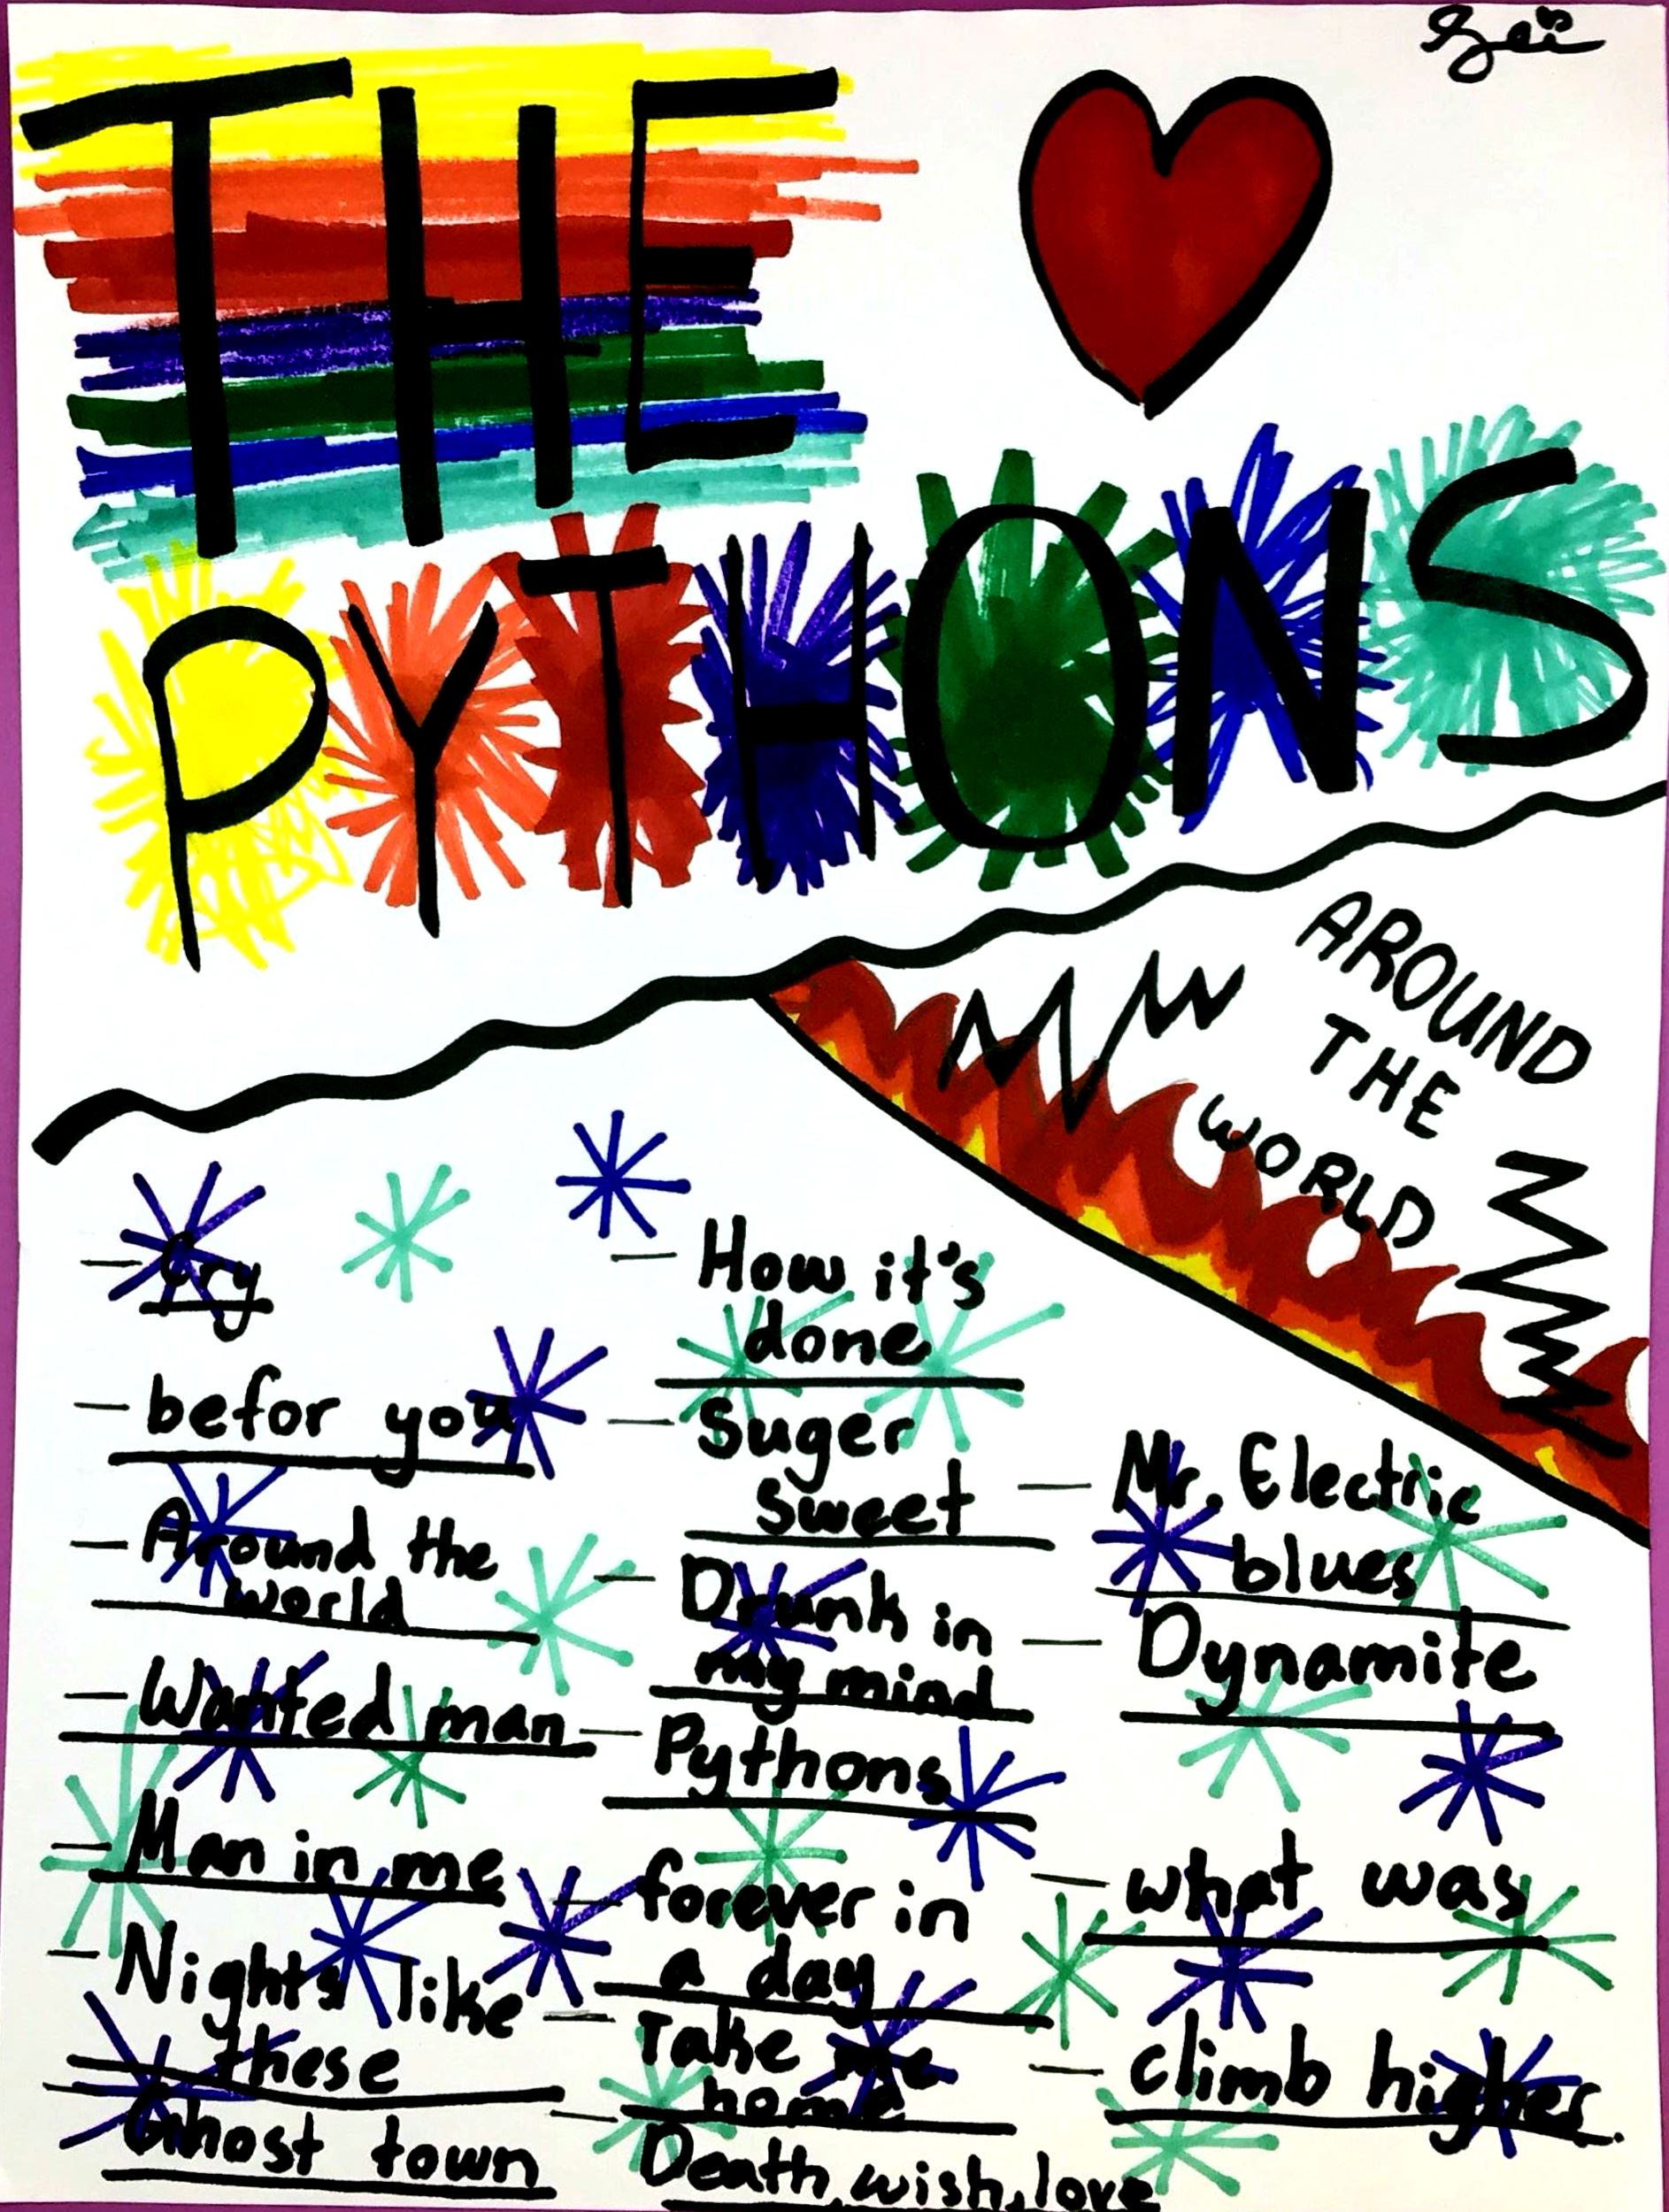 THE
PYTHONS
AROUND
THE
WORLD
- Cry
- befor you
- Around the
world
- Wanted man
- Man in me
- Nights like
these
Ghost town
- How it's
done
- Suger
sweet
- Drunk in
my mind
- Pythons
- forever in
a day
- Take me
home
- Death wish love
- Mr. Electric
blues
- Dynamite
- what was
- climb higher.